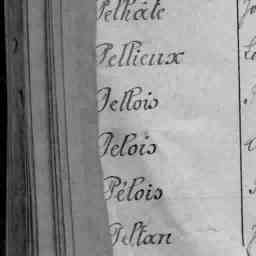 Pelhâte
Pellieux
Pellois
Pelois
Pélois
Peltan